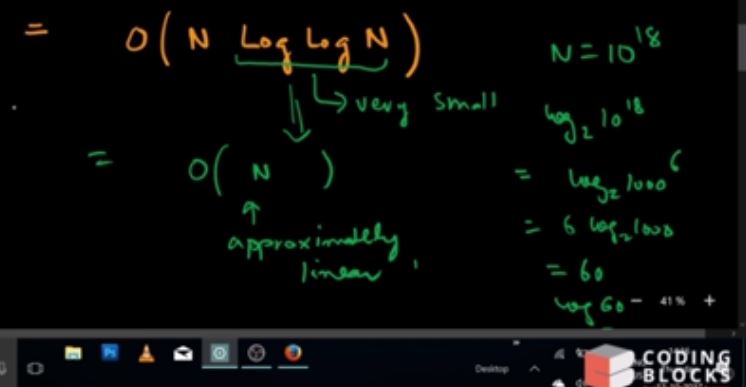 = O(N Log Log N)
↳ very small
= O(N)
approximately
linear
N = 10^18
log₂ 10^18
= log₂ 1000^6
= 6 log₂ 1000
= 60
log 60
− 41 % +
Desktop
CODING
BLOCKS